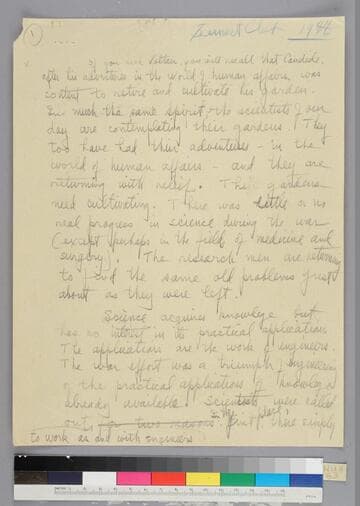 1
Zamorano Club 1946
If you read Voltaire you will recall that Candide,
after his adventures in the world of human affairs, was
content to retire and cultivate his garden.
In much the same spirit the scientists of our
day are contemplating their gardens. They
too have had their adventures - in the
world of human affairs - and they are
returning with relief. Their gardens
need cultivating. There was little or no
real progress in science during the war
(except perhaps in the field of medicine and
surgery). The research men are returning
to find the same old problems just
about as they were left.
Science acquires knowledge but
has no interest in the practical applications.
The applications are the work of engineers.
The war effort was a triumph of engineering
of the practical applications of knowledge
already available. Scientists were called
out for two reasons. In the past, there simply
to work as and with engineers